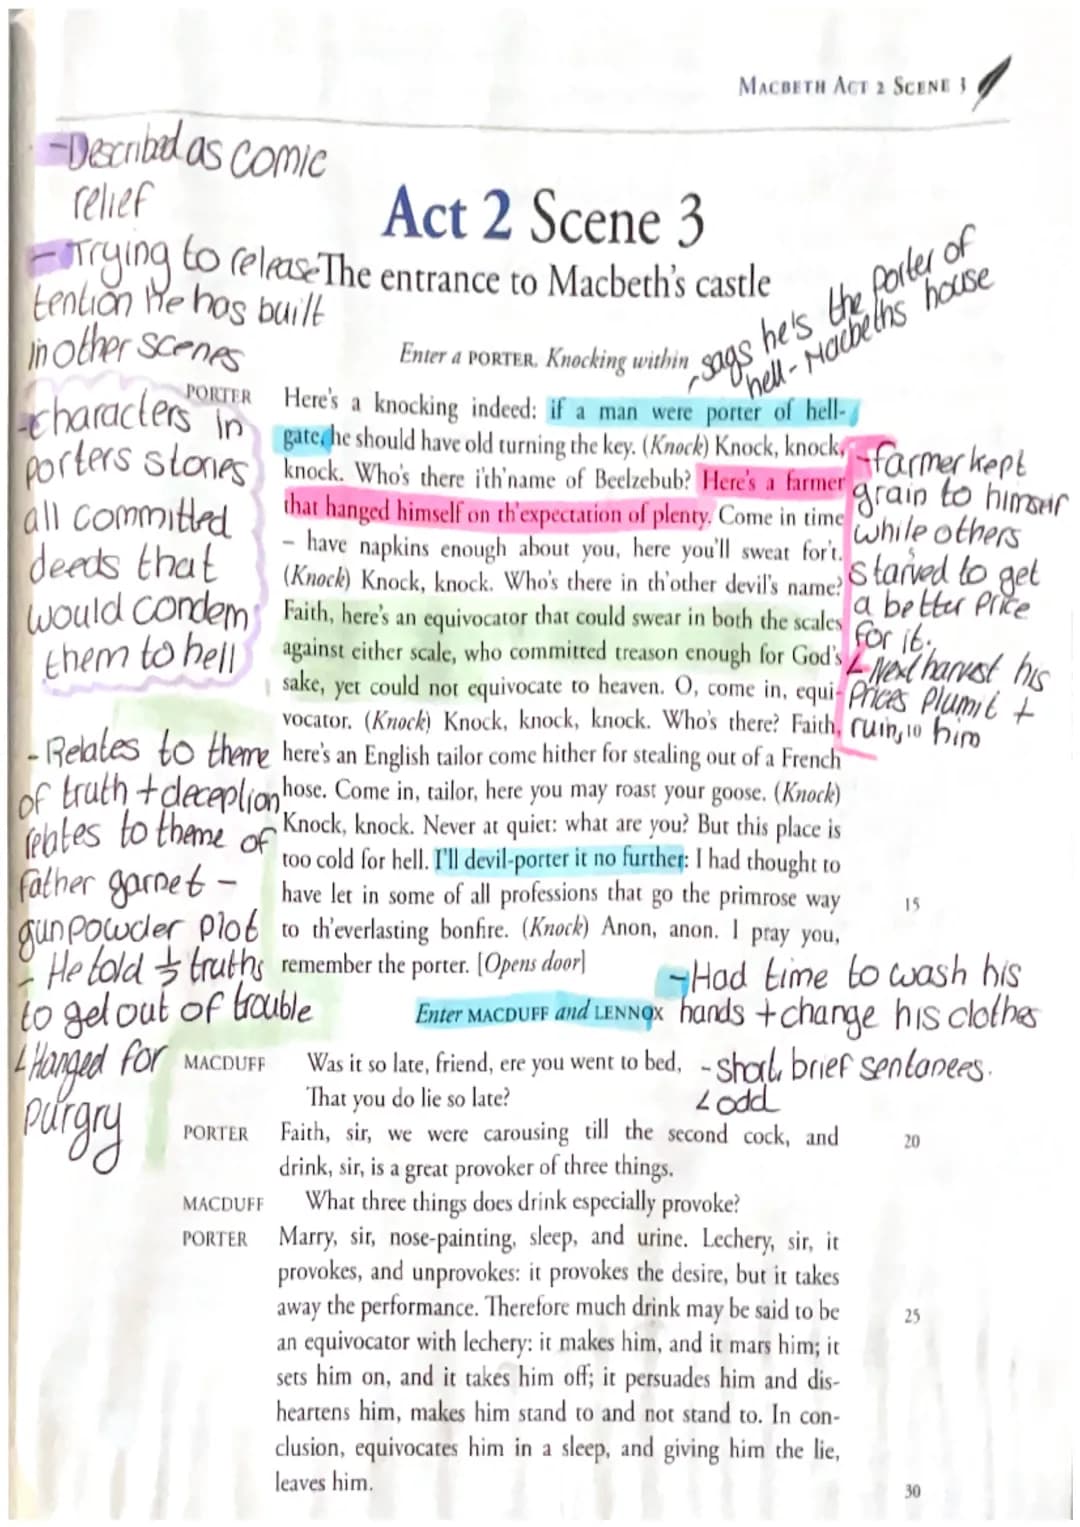 MACBETH ACT 2 SCENE 3
-Described as comic
relief
Act 2 Scene 3
- Trying to release
tention he has built
in other scenes
The entrance to Macbeth's castle
Enter a PORTER. Knocking within
says he's the porter of
hell - Macbeths house
-characters in
porters stories
all committed
deeds that
would condem
them to hell
PORTER Here's a knocking indeed: if a man were porter of hell-
gate, he should have old turning the key. (Knock) Knock, knock,
knock. Who's there i'th'name of Beelzebub? Here's a farmer
that hanged himself on th'expectation of plenty. Come in time
– have napkins enough about you, here you'll sweat for't.
(Knock) Knock, knock. Who's there in th'other devil's name?
Faith, here's an equivocator that could swear in both the scales
against either scale, who committed treason enough for God's
sake, yet could not equivocate to heaven. O, come in, equi-
vocator. (Knock) Knock, knock, knock. Who's there? Faith,
here's an English tailor come hither for stealing out of a French
hose. Come in, tailor, here you may roast your goose. (Knock)
Knock, knock. Never at quiet: what are you? But this place is
too cold for hell. I'll devil-porter it no further: I had thought to
have let in some of all professions that go the primrose way
15
to th'everlasting bonfire. (Knock) Anon, anon. I pray you,
remember the porter. [Opens door]
-farmer kept
grain to himself
while others
starved to get
a better price
for it.
Next harvest his
Prices plumit +
ruin
10
him
- Relates to theme
of truth + deception
relates to theme of
father garnet -
gunpowder plot
- He told ½ truths
to get out of trouble
Hanged for
purgry
Enter MACDUFF and LENNOX
-Had time to wash his
hands + change his clothes
MACDUFF Was it so late, friend, ere you went to bed,
That you do lie so late?
- short, brief sentanees.
odd
PORTER Faith, sir, we were carousing till the second cock, and
20
drink, sir, is a great provoker of three things.
MACDUFF What three things does drink especially provoke?
PORTER Marry, sir, nose-painting, sleep, and urine. Lechery, sir, it
provokes, and unprovokes: it provokes the desire, but it takes
away the performance. Therefore much drink may be said to be
25
an equivocator with lechery: it makes him, and it mars him; it
sets him on, and it takes him off; it persuades him and dis-
heartens him, makes him stand to and not stand to. In con-
clusion, equivocates him in a sleep, and giving him the lie,
leaves him.
30